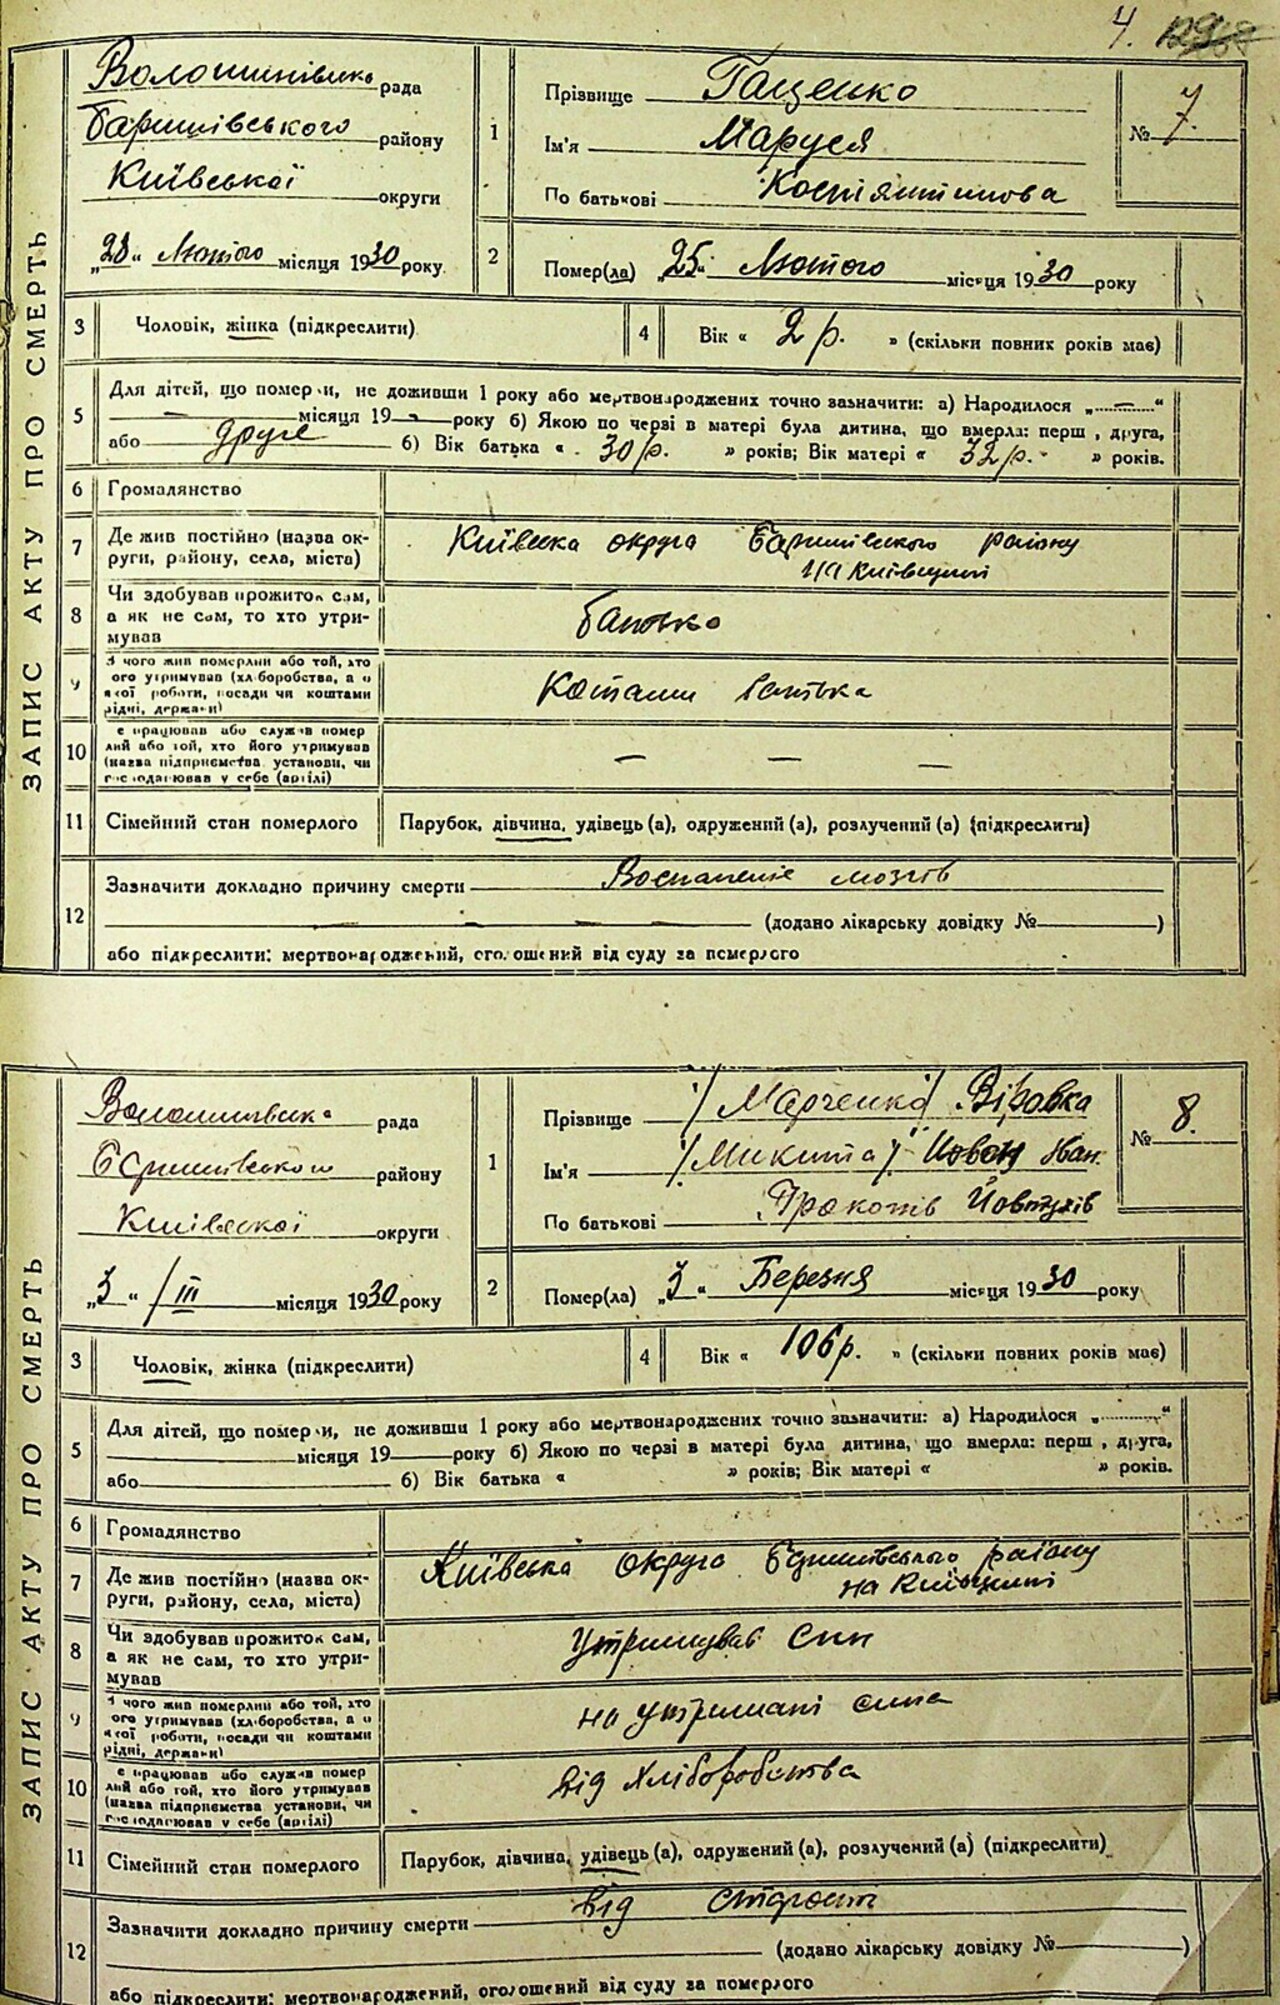 4.
ЗАПИС АКТУ ПРО СМЕРТЬ
Волошинівська рада
Баришівського району
Київської округи
„28“ Лютого місяця 1930 року.
1
Прізвище Гаценко
Ім'я Маруся
По батькові Костянтинова
№ 7.
2
Помер(ла) „25“ Лютого місяця 1930 року
3 Чоловік, жінка (підкреслити)
4 Вік « 2 р. » (скільки повних років має)
5 Для дітей, що померли, не доживши 1 року або мертвонароджених точно зазначити: а) Народилося „ — “
— місяця 19 — року б) Якою по черзі в матері була дитина, що вмерла: перш , друга,
або друге б) Вік батька « 30 р. » років; Вік матері « 32 р. » років.
6 Громадянство
7 Де жив постійно (назва ок-
руги, району, села, міста)
Київська округа Баришівського району
на Київщині
8 Чи здобував прожиток сам,
а як не сам, то хто утри-
мував
Батько
9 З чого жив померлий або той, хто
ого утримував (хліборобства, а о
якої роботи, посади чи коштами
рідні, держави)
Коштами батька
10 е працював або служив помер
лий або той, хто його утримував
(назва підприємства установи, чи
господарював у себе (артілі)
— — —
11 Сімейний стан померлого Парубок, дівчина, удівець (а), одружений (а), розлучений (а) (підкреслити)
12 Зазначити докладно причину смерти Воспаленіе мозгів
(додано лікарську довідку № )
або підкреслити: мертвонароджений, оголошений від суду за померлого
ЗАПИС АКТУ ПРО СМЕРТЬ
Волошинівська рада
Баришівського району
Київської округи
„3“ / III місяця 1930 року
1
Прізвище /Марченко/ Вірьовка
Ім'я /Микита/ Іван.
По батькові Прокопів Йовтухів
№ 8.
2
Помер(ла) „3“ Березня місяця 1930 року
3 Чоловік, жінка (підкреслити)
4 Вік « 106 р. » (скільки повних років має)
5 Для дітей, що померли, не доживши 1 року або мертвонароджених точно зазначити: а) Народилося „ “
місяця 19 року б) Якою по черзі в матері була дитина, що вмерла: перш , друга,
або б) Вік батька « » років; Вік матері « » років.
6 Громадянство
7 Де жив постійно (назва ок-
руги, району, села, міста)
Київська округа Баришівського району
на Київщині
8 Чи здобував прожиток сам,
а як не сам, то хто утри-
мував
Утримував син
9 З чого жив померлий або той, хто
ого утримував (хліборобства, а о
якої роботи, посади чи коштами
рідні, держави)
на утримані сина
10 е працював або служив помер
лий або той, хто його утримував
(назва підприємства установи, чи
господарював у себе (артілі)
від хліборобства
11 Сімейний стан померлого Парубок, дівчина, удівець (а), одружений (а), розлучений (а) (підкреслити)
12 Зазначити докладно причину смерти від старості
(додано лікарську довідку № )
або підкреслити: мертвонароджений, оголошений від суду за померлого